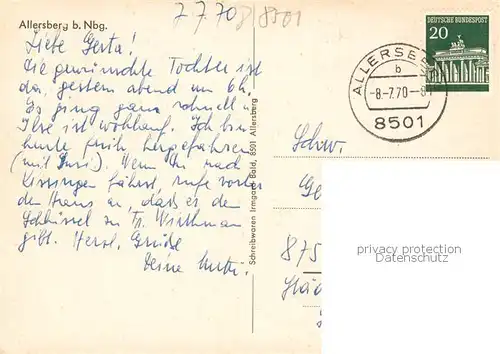 7.7.70 8501
Allersberg b. Nbg.
Liebe Gerta!
Die gewünschte Tochter ist
da, gestern abend um 6h.
Es ging ganz schnell u.
Ilse ist wohlauf. Ich bin
heute früh hergefahren
(mit Susi). Wenn Du nach
Kissingen fährst, rufe vorher
den Hans an, daß er den
Schlüssel zu Fr. Wirthman
gibt. Herzl. Grüße
Deine
Schreibwaren Irmgard Bald, 8501 Allersberg
DEUTSCHE BUNDESPOST
20
ALLERSBE
b
-8.-7.70-
8501
Schw.
Ge
875
privacy protection
Datenschutz